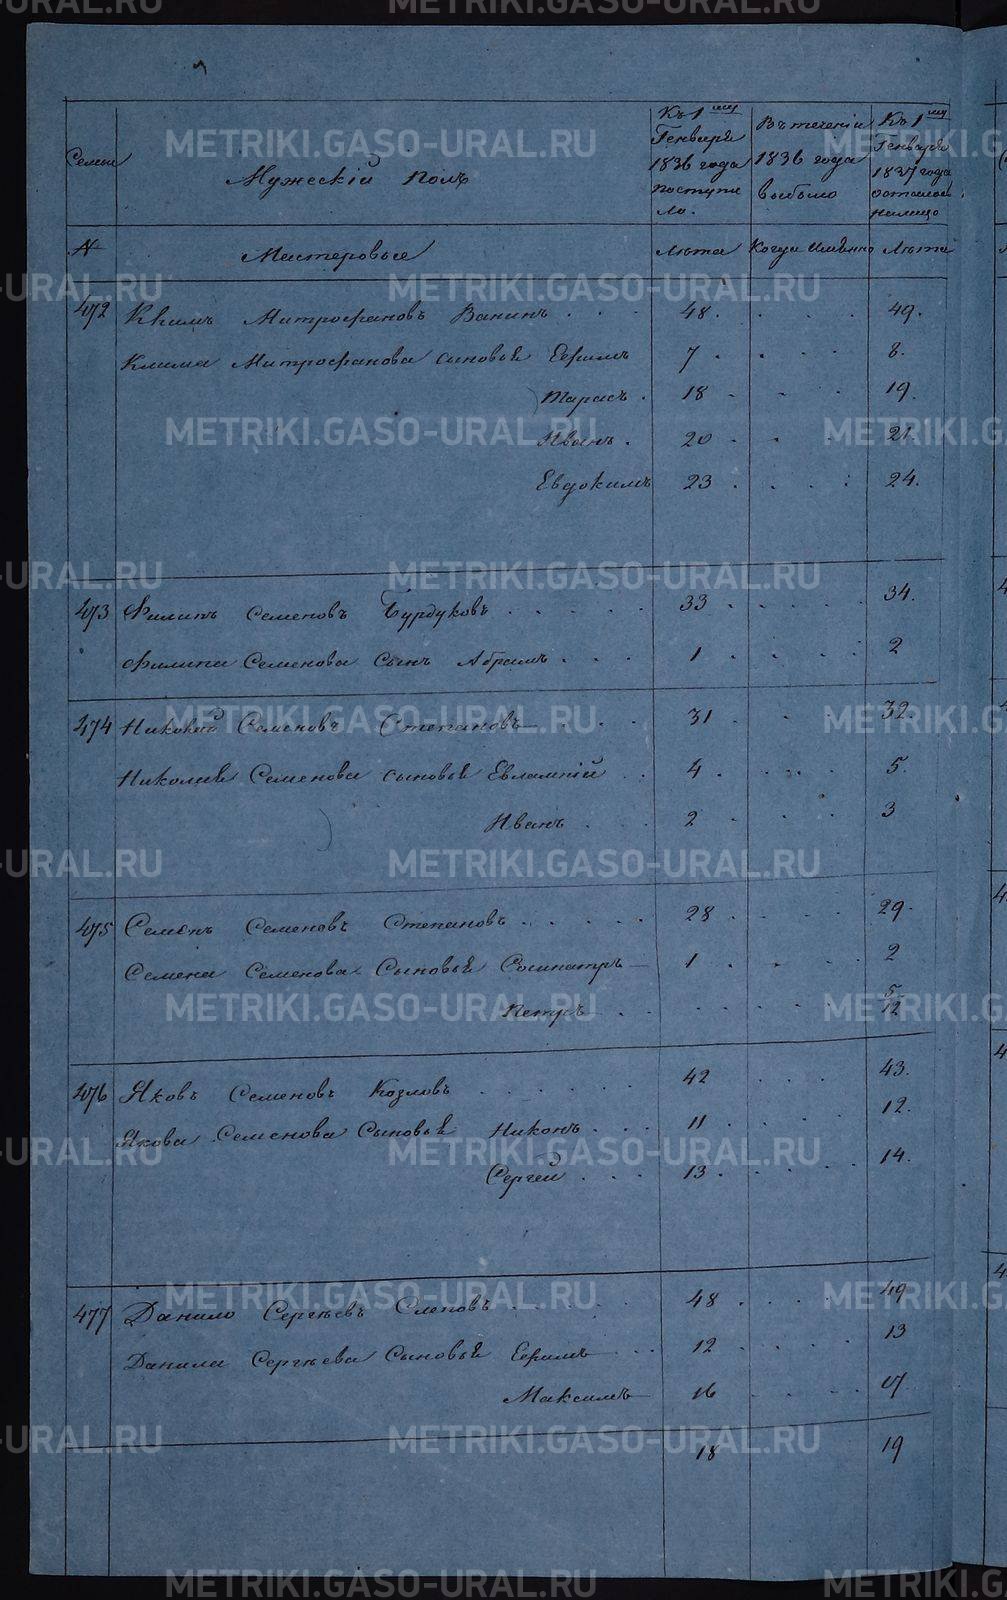 METRIKI.GASO-URAL.RU
Семьи
Мужескій Полъ
Къ 1му Генваря 1836 года поступило.
Въ теченіи 1836 года выбыло
Къ 1му Генваря 1837 года осталось налицо
№ Мастеровые Лѣта Когда Именно Лѣта
472 Климъ Митрофановъ Ванинъ . . . 48. 49.
Клима Митрофанова сыновья Ефримъ 7 8.
Тарасъ . 18 19.
Иванъ . 20 21.
Евдокимъ 23 24.
473 Филипъ Семеновъ Бурдуковъ . . . . . 33 34.
Филипа Семенова Сынъ Абрамъ . . . 1 2
474 Николай Семеновъ Степановъ 31 32.
Николая Семенова сыновья Евлампій . . 4 5.
Иванъ . . . 2 3
475 Семенъ Семеновъ Степановъ . . . . . 28 29.
Семена Семенова Сыновья Сосипатръ 1 2
Петръ . . 5/12
476 Яковъ Семеновъ Козловъ . . . . . 42 43.
Якова Семенова Сыновья Никонъ . . . 11 12.
Сергей . . . 13 14.
477 Данило Сергѣевъ Слеповъ . . . . 48 49
Данила Сергѣева Сыновья Ефримъ . . . 12 13
Максимъ 16 17
18 19